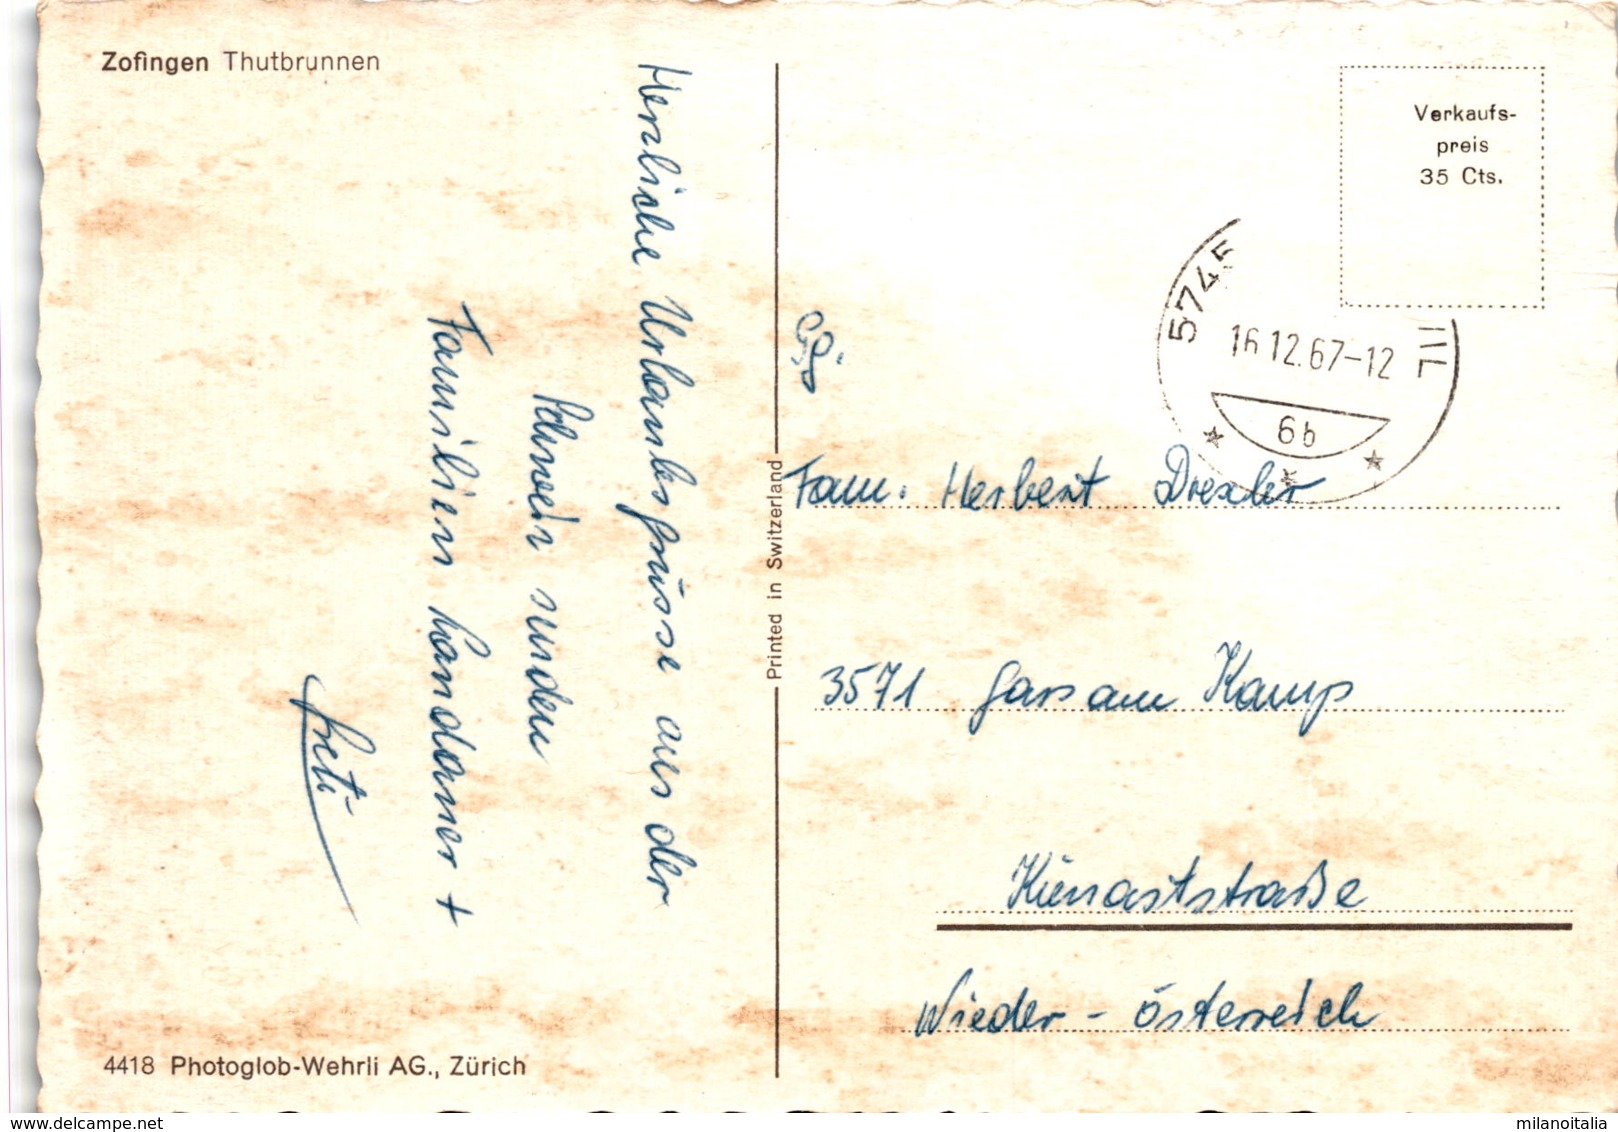 Zofingen Thutbrunnen
Herzliche Urlaubsgrüsse aus der
Schweiz senden
Familien Landauer +
Greti
4418 Photoglob-Wehrli AG., Zürich
Printed in Switzerland
Verkaufs-
preis
35 Cts.
5745
16.12.67-12
6b
Fam. Herbert Drexler
3571 Gars am Kamp
Kienaststraße
Nieder-österreich
delcampe.net
milanoitalia